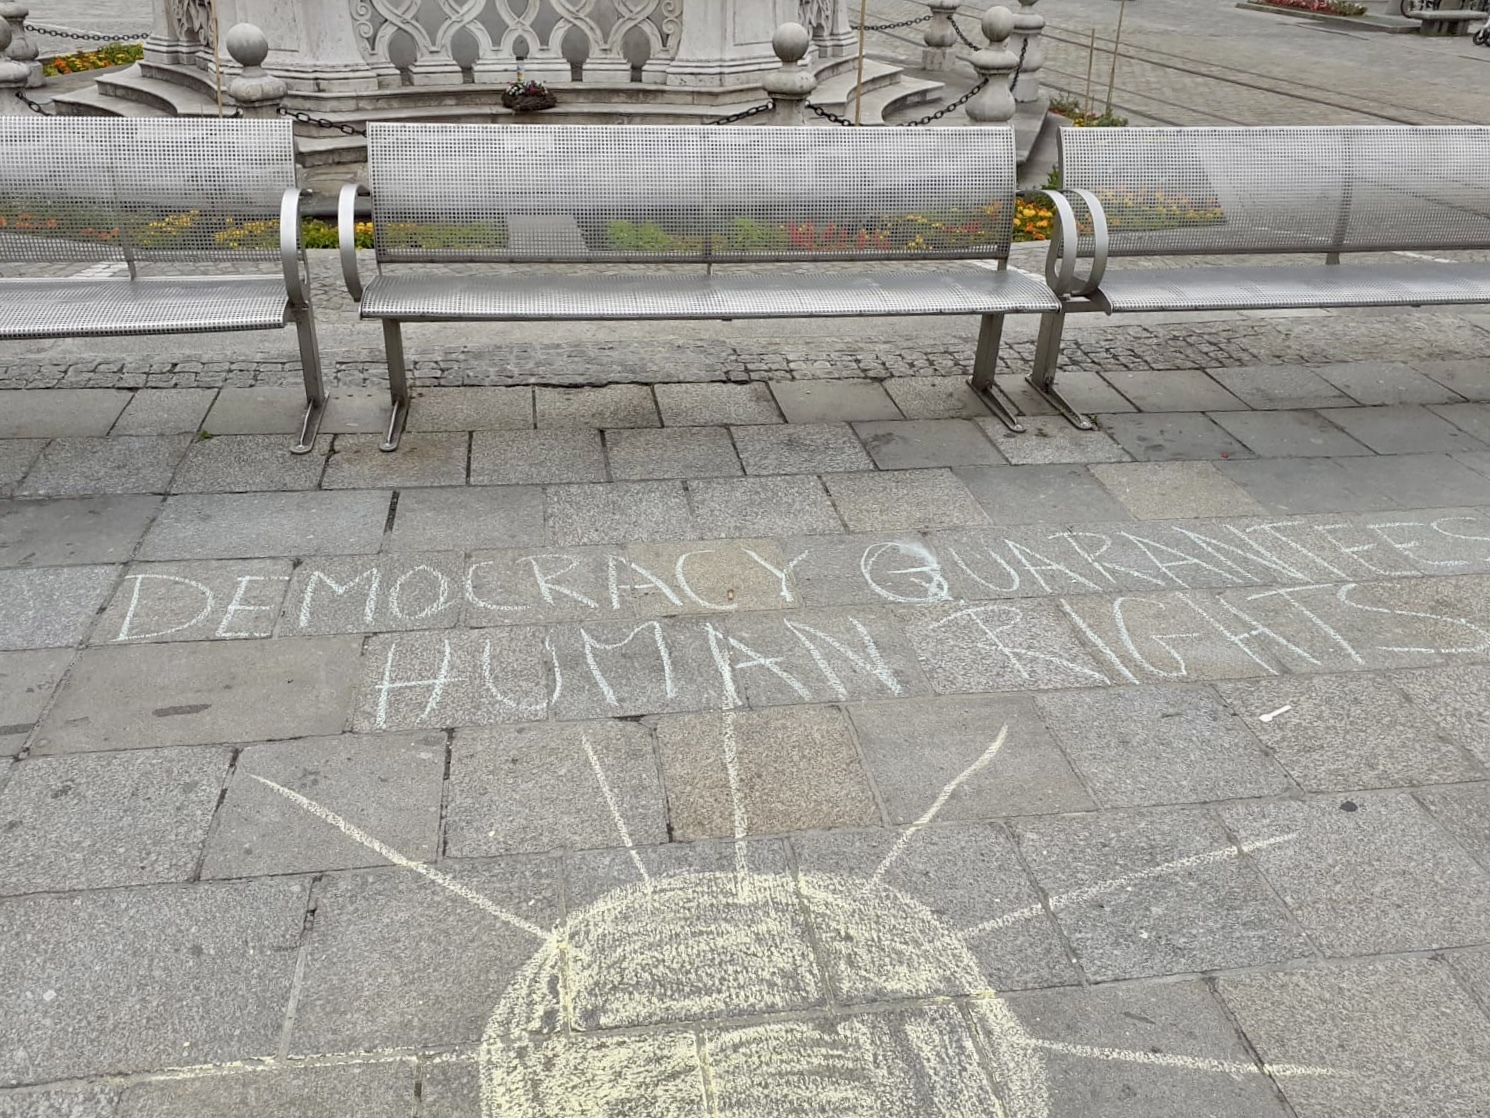 DEMOCRACY GUARANTEES
HUMAN RIGHTS